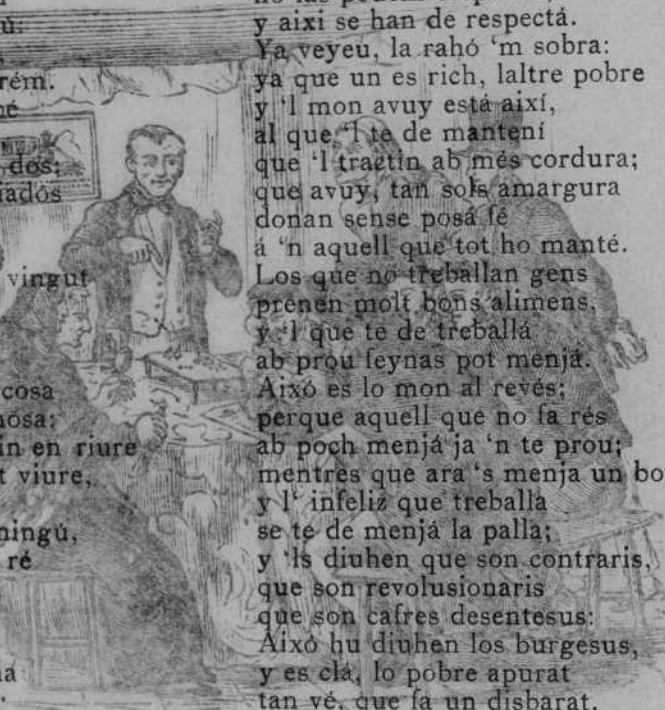 ú:
rém.
né
dos;
iadós
vingut
cosa
nosa;
in en riure
t viure,
ningú,
ré
y aixi se han de respectá.
Ya veyeu, la rahó 'm sobra:
ya que un es rich, laltre pobre
y 'l mon avuy está així,
al que 'l te de mantení
que 'l tractin ab més cordura;
que avuy, tan sols amargura
donan sense posá fé
á 'n aquell que tot ho manté.
Los que no treballan gens
prenen molt bons alimens,
y 'l que te de treballá
ab prou feynas pot menjá.
Aixó es lo mon al revés;
perque aquell que no fa rés
ab poch menjá ja 'n te prou;
mentres que ara 's menja un bo
y l' infeliz que treballa
se te de menjá la palla;
y 'ls diuhen que son contraris,
que son revolusionaris
que son cafres desentesus:
Aixó hu diuhen los burgesus,
y es clá, lo pobre apurat
tan vé, que fa un disbarat.